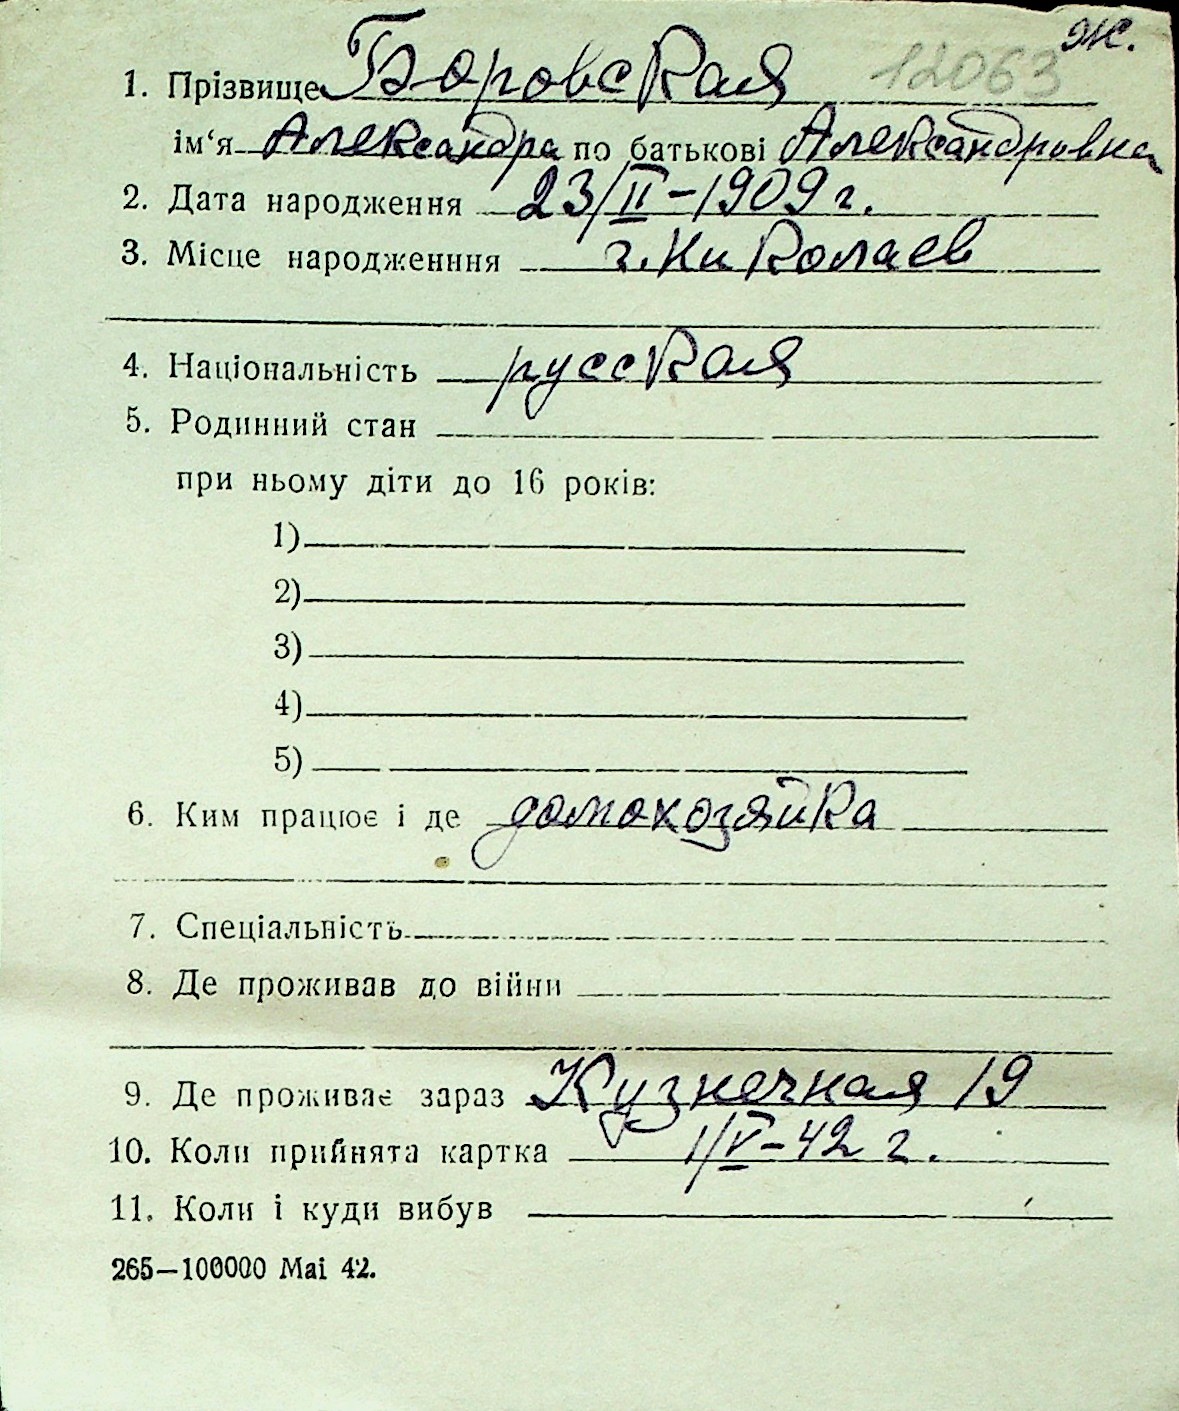 Ж.
12063
1. Прізвище Боровская
ім‘я Александра по батькові Александровна
2. Дата народження 23/II-1909 г.
3. Місце народженння г. Николаев
4. Національність русская
5. Родинний стан
при ньому діти до 16 років:
1)
2)
3)
4)
5)
6. Ким працює і де домохозяйка
7. Спеціальність
8. Де проживав до війни
9. Де проживає зараз Кузнечная 19
10. Коли прийнята картка 1/V-42 г.
11. Коли і куди вибув
265—100000 Маі 42.